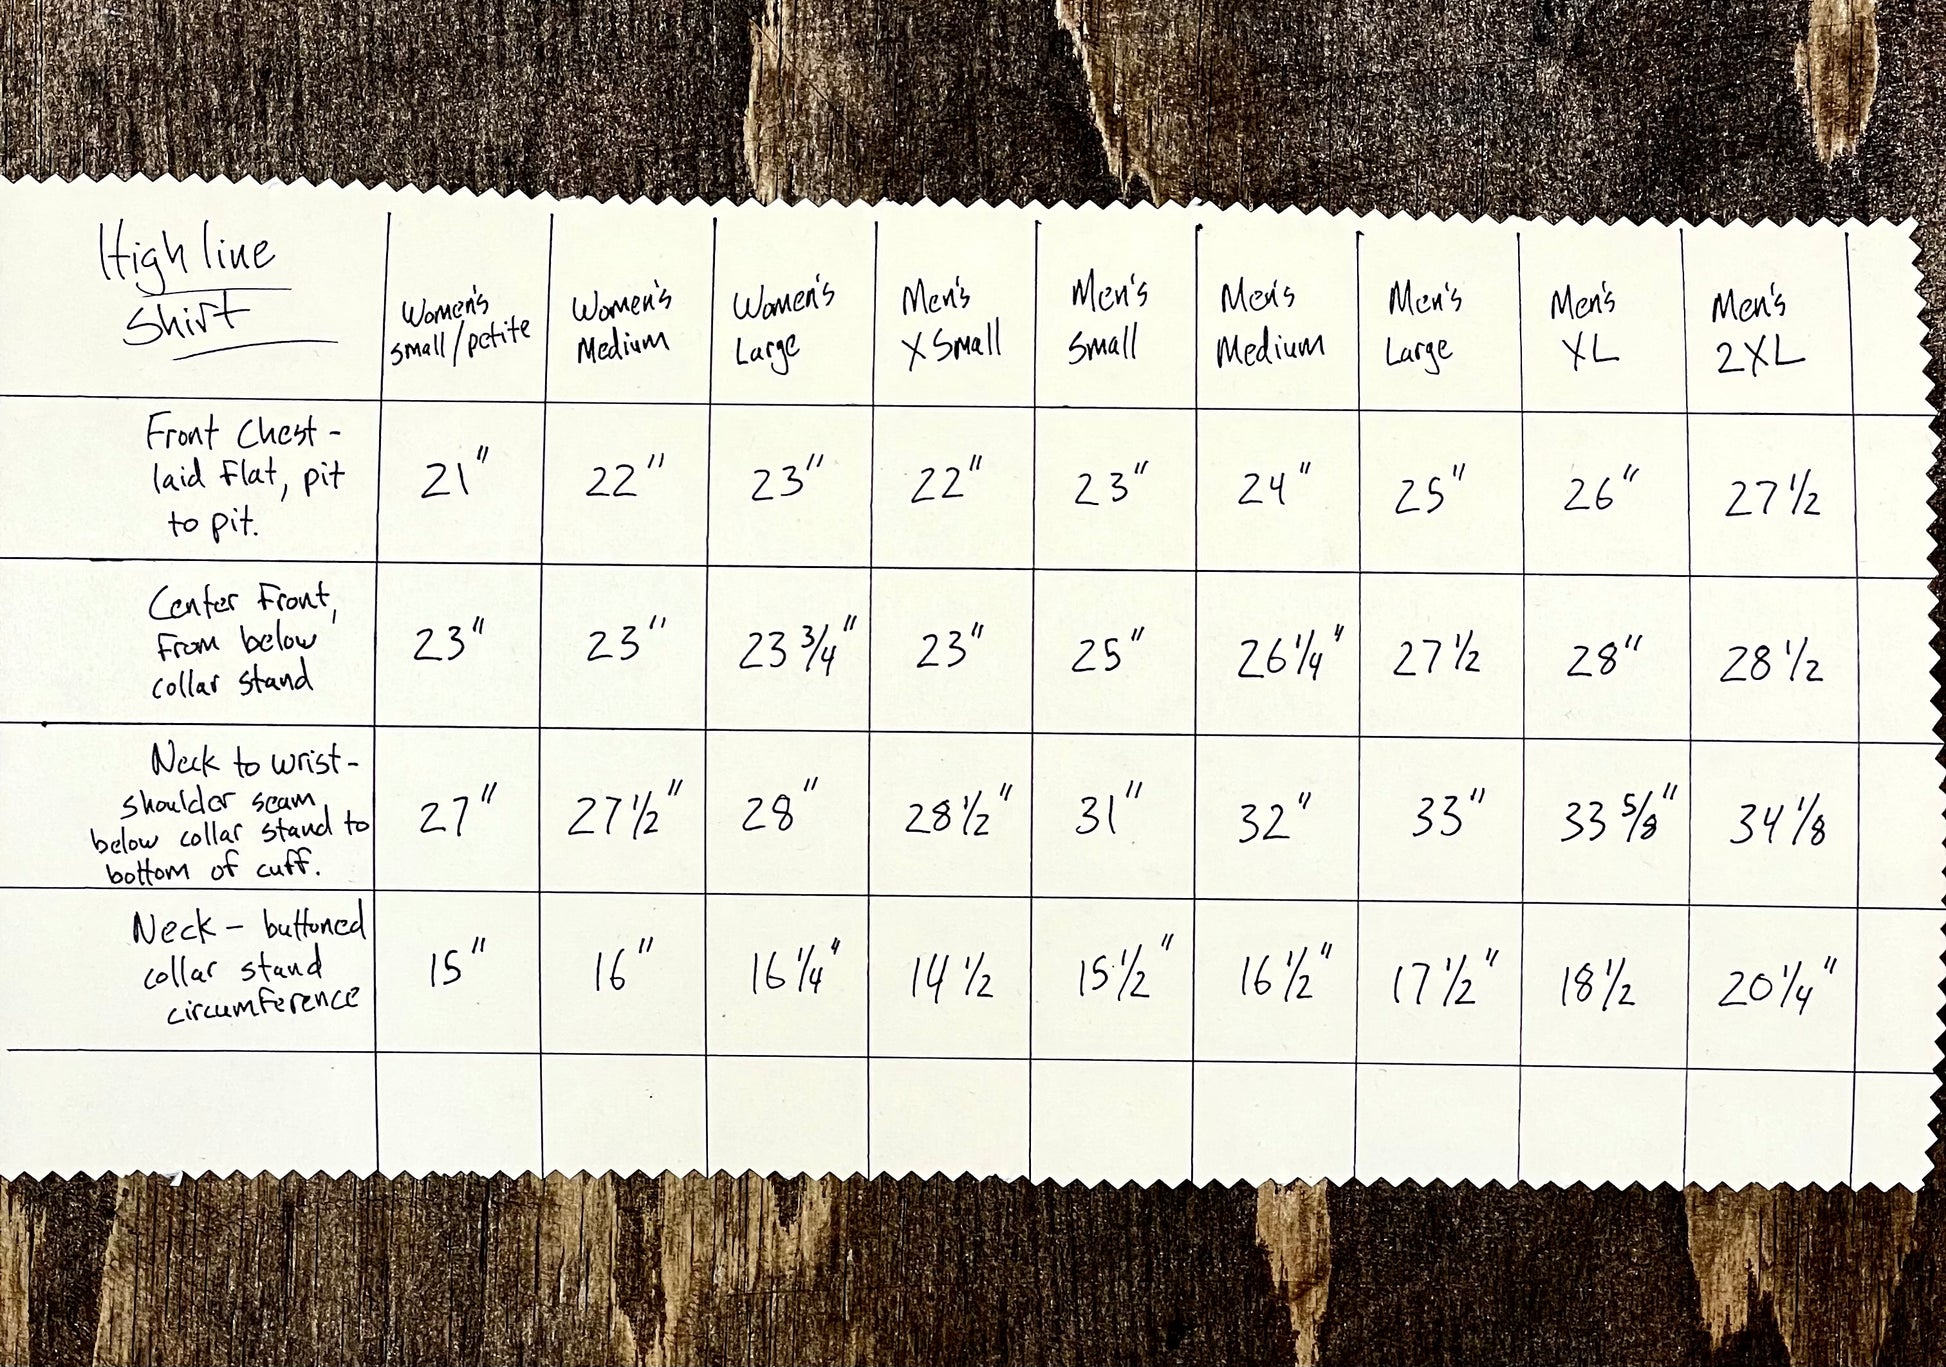 High line
Shirt
Women's
small/petite
Women's
Medium
Women's
Large
Men's
X Small
Men's
Small
Men's
Medium
Men's
Large
Men's
XL
Men's
2XL
Front Chest -
laid flat, pit
to pit.
21" 22" 23" 22" 23" 24" 25" 26" 27 1/2
Center Front,
From below
collar stand
23" 23" 23 3/4" 23" 25" 26 1/4" 27 1/2 28" 28 1/2
Neck to wrist -
shoulder seam
below collar stand to
bottom of cuff.
27" 27 1/2" 28" 28 1/2" 31" 32" 33" 33 5/8" 34 1/8
Neck - buttoned
collar stand
circumference
15" 16" 16 1/4" 14 1/2 15 1/2" 16 1/2" 17 1/2" 18 1/2 20 1/4"